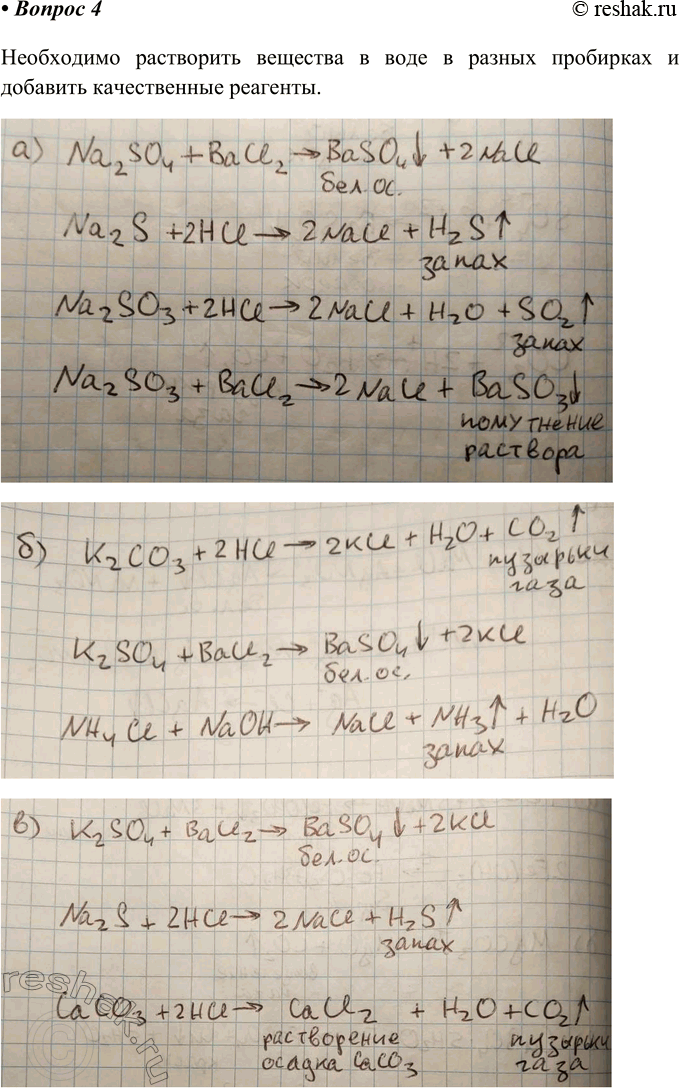 • Вопрос 4
© reshak.ru
Необходимо растворить вещества в воде в разных пробирках и
добавить качественные реагенты.
а) Na₂SO₄ + BaCl₂ → BaSO₄↓ + 2NaCl
бел. ос.
Na₂S + 2HCl → 2NaCl + H₂S↑
запах
Na₂SO₃ + 2HCl → 2NaCl + H₂O + SO₂↑
запах
Na₂SO₃ + BaCl₂ → 2NaCl + BaSO₃↓
помутнение
раствора
б) K₂CO₃ + 2HCl → 2KCl + H₂O + CO₂↑
пузырьки
газа
K₂SO₄ + BaCl₂ → BaSO₄↓ + 2KCl
бел. ос.
NH₄Cl + NaOH → NaCl + NH₃↑ + H₂O
запах
в) K₂SO₄ + BaCl₂ → BaSO₄↓ + 2KCl
бел. ос.
Na₂S + 2HCl → 2NaCl + H₂S↑
запах
CaCO₃ + 2HCl → CaCl₂ + H₂O + CO₂↑
растворение пузырьки
осадка CaCO₃ газа
reshak.ru